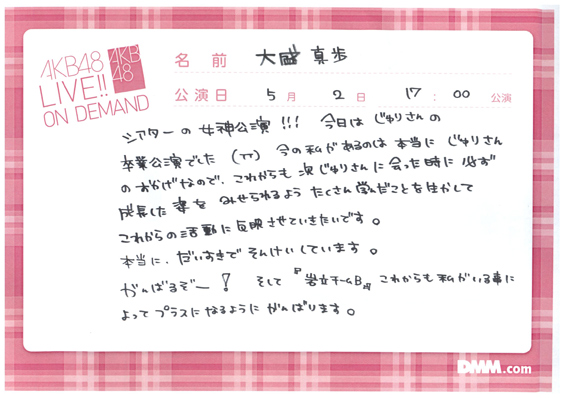 AKB48
LIVE!!
ON DEMAND
AKB
48
名 前 大盛真歩
公演日 5月 2日 17:00 公演
シアターの女神公演!!! 今日はじゅりさんの
卒業公演でした(TT) 今の私があるのは本当にじゅりさん
のおかげなので、これからも次じゅりさんに会った時に必ず
成長した姿をみせられるようたくさん学んだことを生かして
これからの活動に反映させていきたいです。
本当に、だいすきでそんけいしています。
がんばるぞー! そして『岩立チームB』これからも私がいる事に
よってプラスになるようにがんばります。
DMM.com